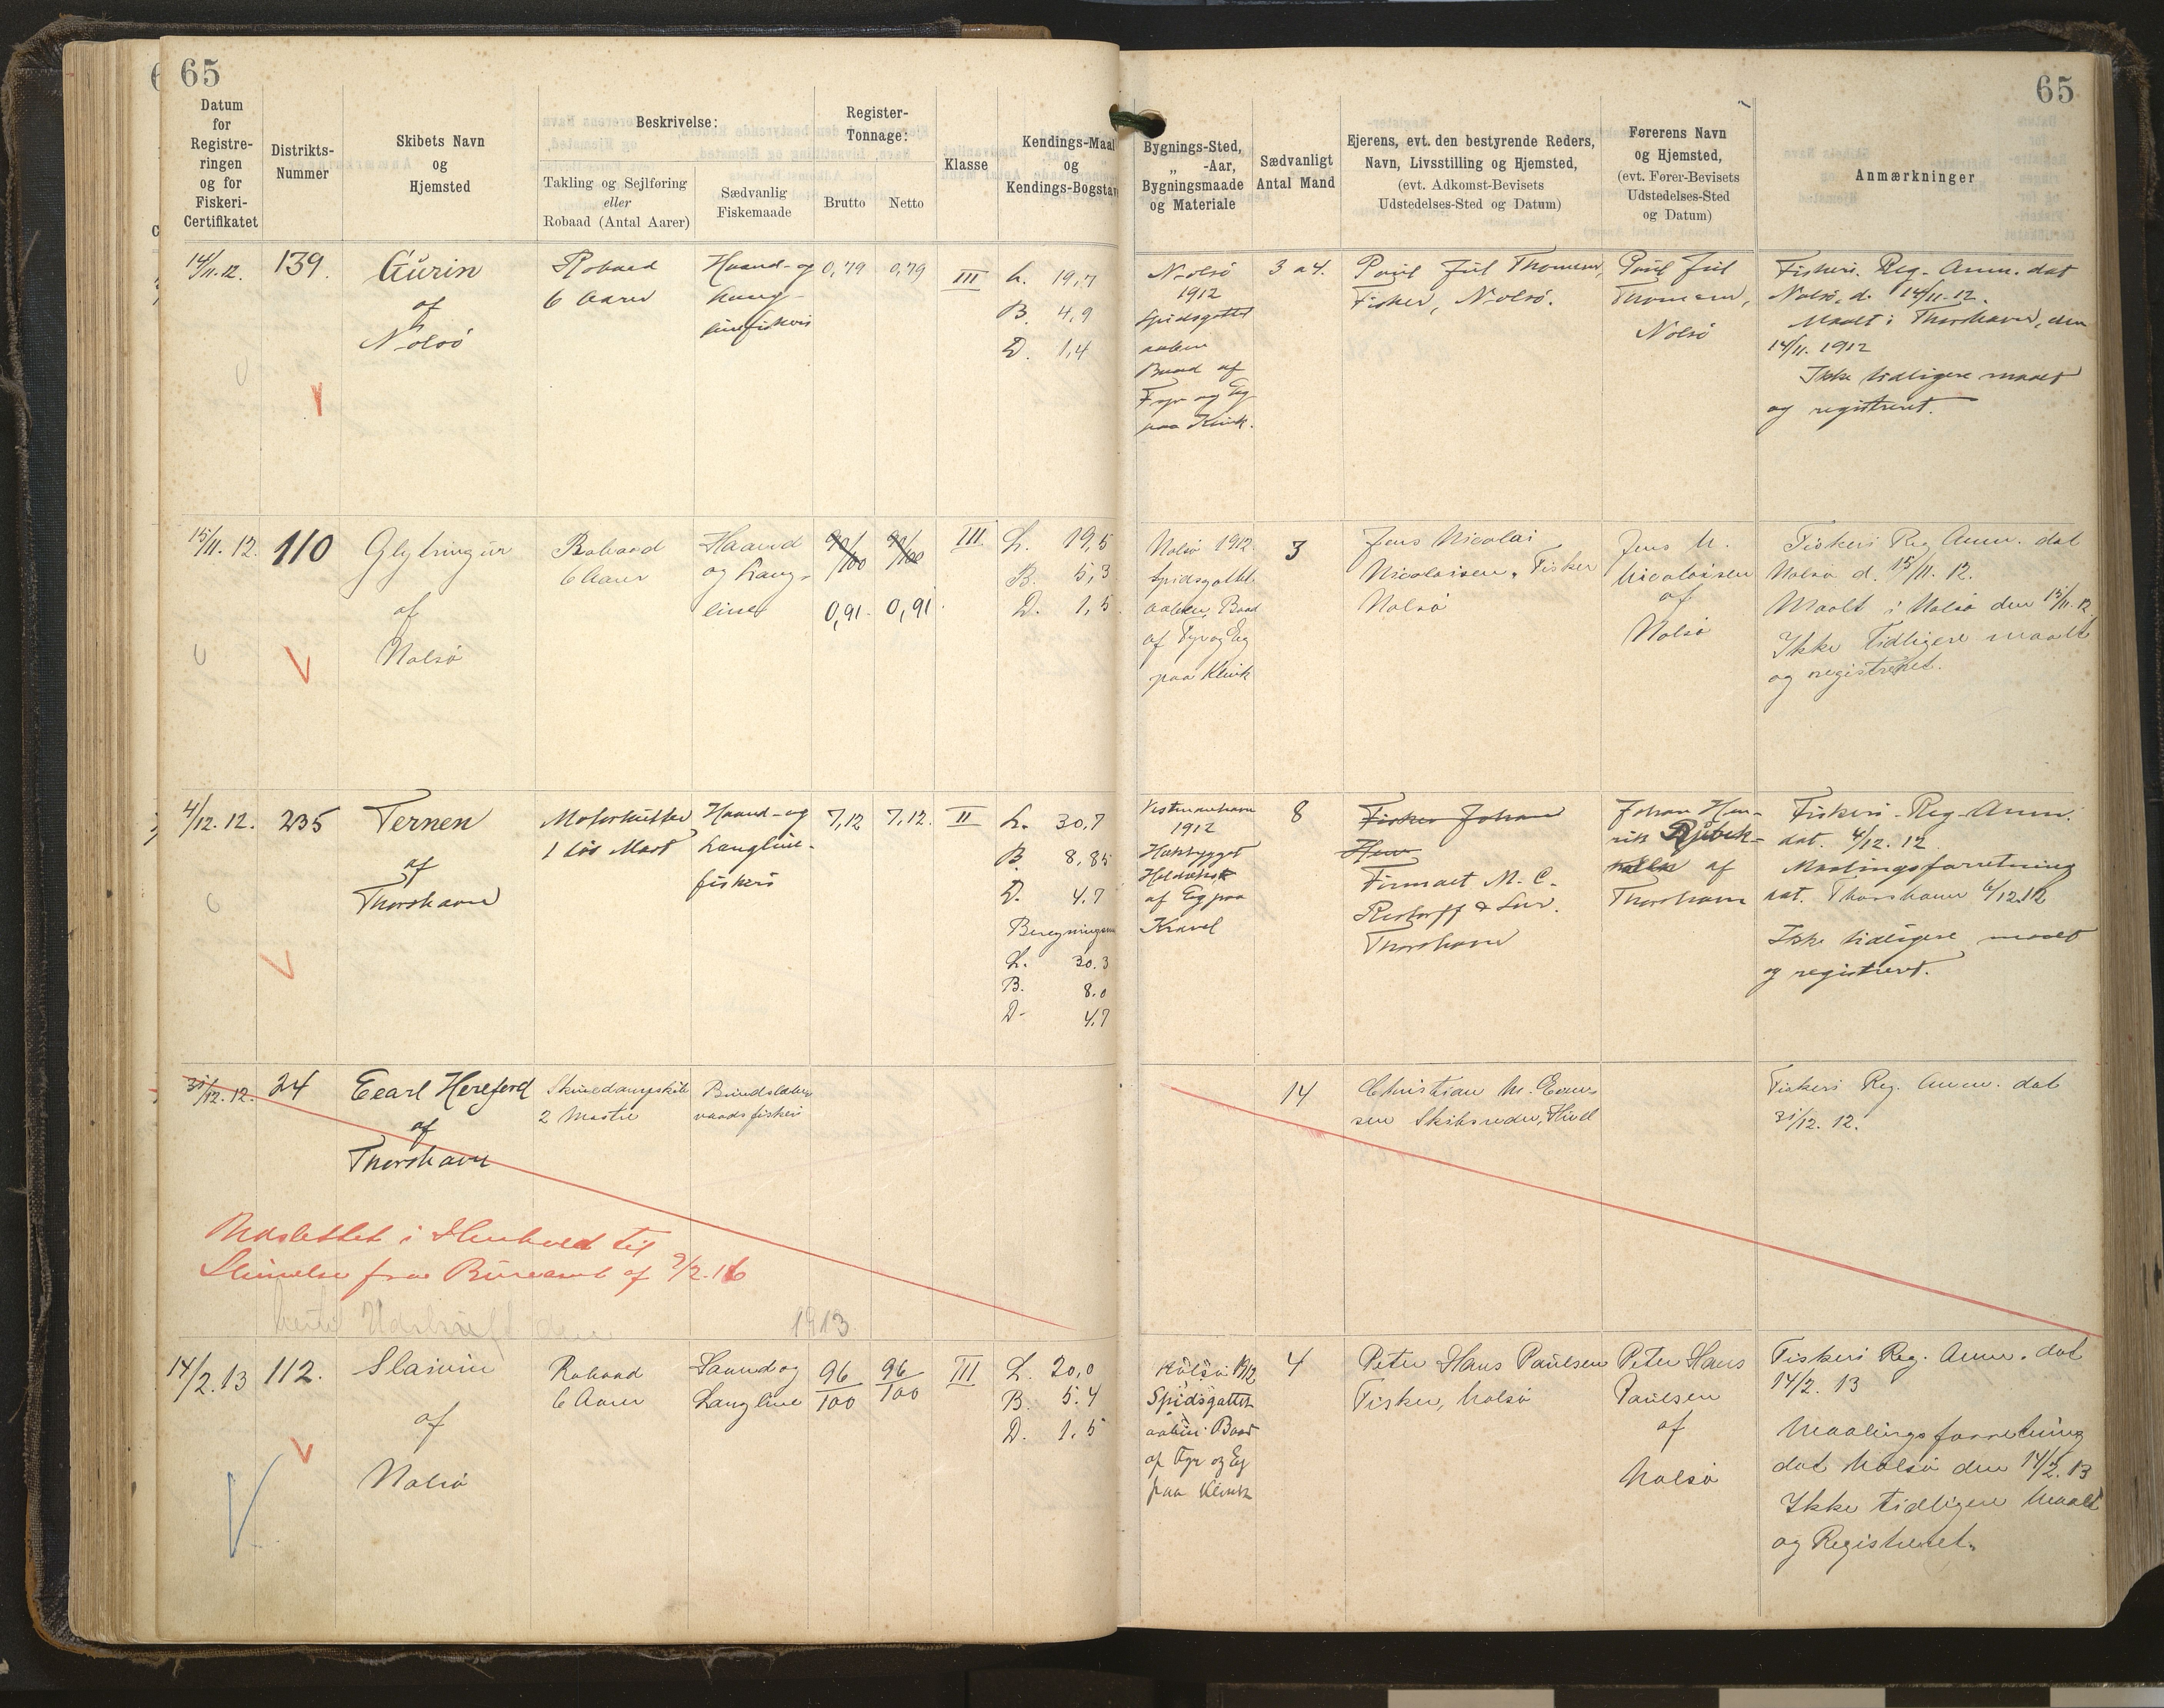 65
65
Datum
for
Registre-
ringen
og for
Fiskeri-
Certifikatet
Distrikts-
Nummer
Skibets Navn
og
Hjemsted
Beskrivelse:
Takling og Sejlføring
eller
Robaad (Antal Aarer)
Sædvanlig
Fiskemaade
Register-
Tonnage:
Brutto
Netto
Klasse
Kendings-Maal
og
Kendings-Bogstav
Bygnings-Sted,
„ -Aar,
Bygningsmaade
og Materiale
Sædvanligt
Antal Mand
Ejerens, evt. den bestyrende Reders,
Navn, Livsstilling og Hjemsted,
(evt. Adkomst-Bevisets
Udstedelses-Sted og Datum)
Førerens Navn
og Hjemsted,
(evt. Fører-Bevisets
Udstedelses-Sted
og Datum)
Anmærkninger
14/11. 12.
139.
Gürin
af
Nolsö
Robaad
6 Aarer
Haand- og
Lang-
linefiskeri
0,79
0,79
III
L. 19,7
B. 4,9
D. 1,4
Nolsö
1912
Spidsgattet
aaben
Baad af
Fyr og Eg
paa Klink.
3 a 4.
Poul Jul Thomsen,
Fisker, Nolsö.
Poul Jul
Thomsen,
Nolsö
Fiskeri. Reg. Anm. dat
Nolsö, d. 14/11-12.
Maalt i Thorshavn, den
14/11. 1912
Ikke tidligere maalt
og registreret.
15/11. 12.
110
Glytringur
af
Nolsö
Robaad
6 Aarer
Haand
og Lang-
line
91/100
91/100
0,91.
0,91.
III
L. 19,5
B. 5,3
D. 1,5
Nolsö 1912.
Spidsgattet
aaben Baad
af Fyr og Eg
paa Klink
3
Jens Nicolai
Nicolaisen, Fisker
Nolsö
Jens N.
Nicolaisen
af
Nolsö
Fiskeri Reg Anm. dat
Nolsö d. 15/11. 12.
Maalt i Nolsö den 15/11. 12
Ikke tidligere maalt
og registreret.
4/12. 12.
235
Ternen
af
Thorshavn
Motorkutter
1 løs Mast
Haand- og
Langline-
fiskeri
7,12
7,12.
II
L. 30,7
B. 8,85
D. 4,7
L. 30.3
B. 8.0
D- 4,7
Vestmanhavn
1912
Hækbygget
Heldæksk
af Eg paa
Kravel
8
Fisker Johan
Hen
Firmaet M. C.
Restorff & Sön.
Thorshavn
Johan Hen-
rik
af
Thorshavn
Fiskeri-Reg-Anm.
dat. 4/12. 12.
Maalingsforretning
dat. Thorshavn 6/12.12
Ikke tidligere maalt
og registreret.
31/12. 12.
24
Eearl Hereford
af
Thorshavn
Skruedampskib
2 Master
Bundslæbe-
vaadsfiskeri
14
Christian M. Even-
sen Skibsreder,
Fiskeri Reg. Anm. dat
31/12. 12.
Udslettet i Henhold til
Skrivelse fra Bureauet af 9/2. 16
Udskrift
1913
14/2. 13
112.
Slaivin
af
Nolsö
Robaad
6 Aarer
Haand og
Langline
96/100
96/100
III
L. 20,0
B. 5.4
D. 1.5
Nolsö. 1912
Spidsgattet
aaben Baad
af Fyr og Eg
paa Klink
4
Peter Hans Poulsen
Fisker, Nolsö
Peter Hans
Poulsen
af
Nolsö
Fiskeri Reg. Anm. dat
14/2. 13
Maalingsforretning
dat Nolsö den 14/2. 13
Ikke tidligere Maalt
og Registreret.